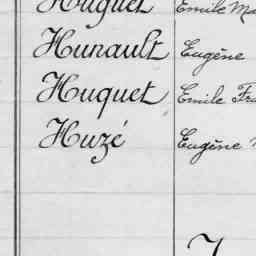 Huguet Emile
Hunault Eugène
Huquet Emile
Huzé Eugène